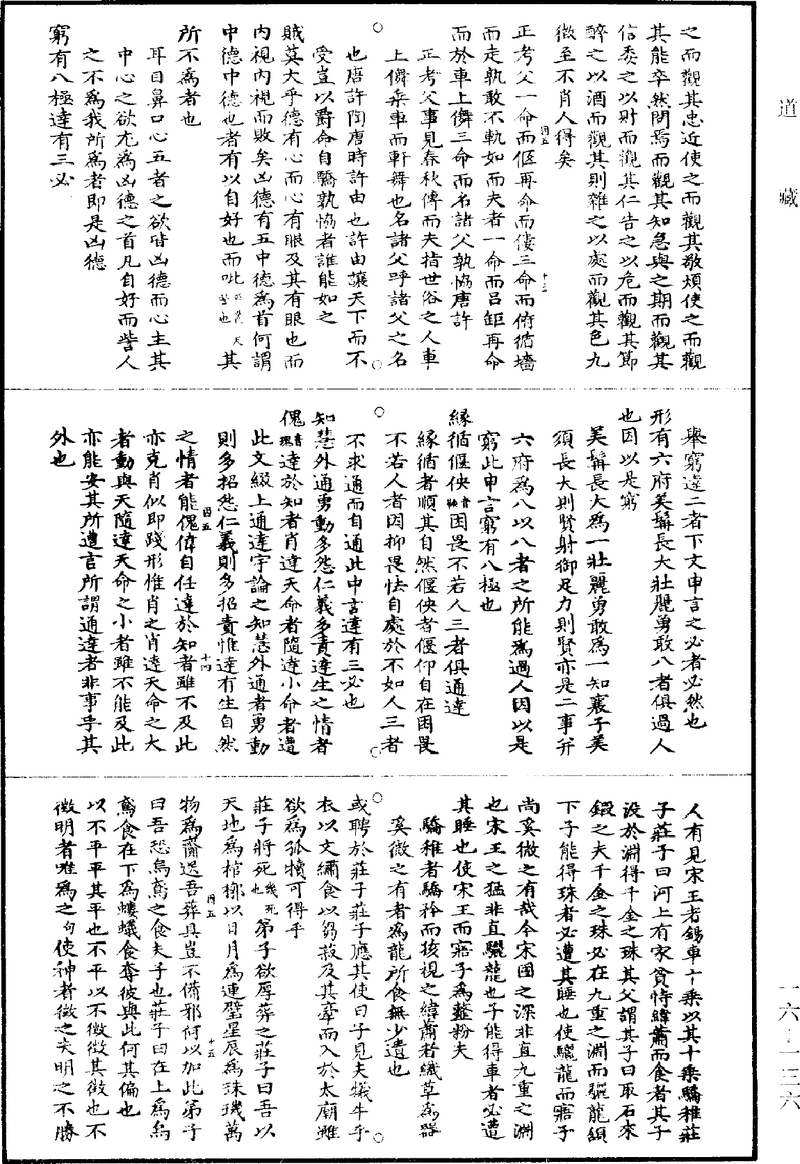 道藏
一六—一三六
之而觀其忠近使之而觀其敬煩使之而觀
其能卒然問焉而觀其知急與之期而觀其
信委之以財而觀其仁告之以危而觀其節
醉之以酒而觀其則雜之以處而觀其色九
徵至不肖人得矣
正考父一命而傴再命而僂三命而俯循墻
而走孰敢不軌如而夫者一命而呂鉅再命
而於車上儛三命而名諸父孰恊唐許
正考父事見春秋傳而夫指世俗之人車
上儛乘車而軒舞也名諸父呼諸父之名
也唐許陶唐時許由也許由讓天下而不
受豈以爵命自驕孰恊者誰能如之
賊莫大乎德有心而心有眼及其有眼也而
內視內視而敗矣凶德有五中德為首何謂
中德中德也者有以自好也而吡其
所不為者也
耳目鼻口心五者之欲皆凶德而心主其
中心之欲尤為凶德之首凡自好而訾人
之不為我所為者即是凶德
窮有八極達有三必
舉窮達二者下文申言之必者必然也
形有六府美髯長大壯麗勇敢八者俱過人
也因以是窮
美髯長大為一壯麗勇敢為一知襄子美
須長大則賢射御足力則賢亦是二事并
六府為八以八者之所能為過人因以是
窮此申言窮有八極也
緣循偃佒困畏不若人三者俱通達
緣循者順其自然偃佒者偃仰自在困畏
不若人者因抑畏怯自處於不如人三者
不求通而自通此申言達有三必也
知慧外通勇動多怨仁義多責達生之情者
傀達於知者肖達天命者隨達小命者遭
此文綴上通達字論之知慧外通者勇動
則多招怨仁義則多招責惟達有生自然
之情者能傀偉自任達於知者雖不及此
亦克肖似即踐形惟肖之肖達天命之大
者動與天隨達天命之小者雖不能及此
亦能安其所遭言所謂通達者非事乎其
外也
人有見宋王者錫車十乘以其十乘驕稚莊
子莊子曰河上有家貧恃緯蕭而食者其子
沒於淵得千金之珠其父謂其子曰取石來
鍛之夫千金之珠必在九重之淵而驪龍頷
下子能得珠者必遭其睡也使驪龍而寤子
尚奚微之有哉今宋國之深非直九重之淵
也宋王之猛非直驪龍也子能得車者必遭
其睡也使宋王而寤子為虀粉夫
驕稚者驕矜而孩視之緯蕭者織草為器
奚微之有者為龍所食無少遺也
或聘於莊子莊子應其使曰子見夫犧牛乎
衣以文繡食以芻菽及其牽而入於太廟雖
欲為孤犢可得乎
莊子將死弟子欲厚葬之莊子曰吾以
天地為棺槨以日月為連璧星辰為珠璣萬
物為齎送吾葬具豈不備邪何以加此弟子
曰吾恐烏鳶之食夫子也莊子曰在上為烏
鳶食在下為螻蟻食奪彼與此何其偏也
以不平平其平也不平以不徵徵其徵也不
徵明者唯為之句使神者徵之夫明之不勝